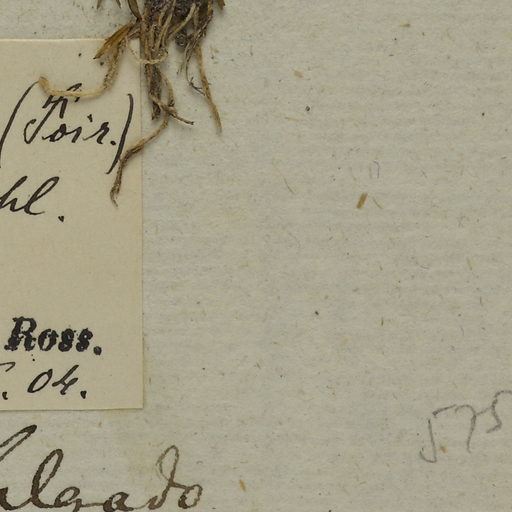 (Poir.)
hl.
Ross.
. 04.
575
Salgado